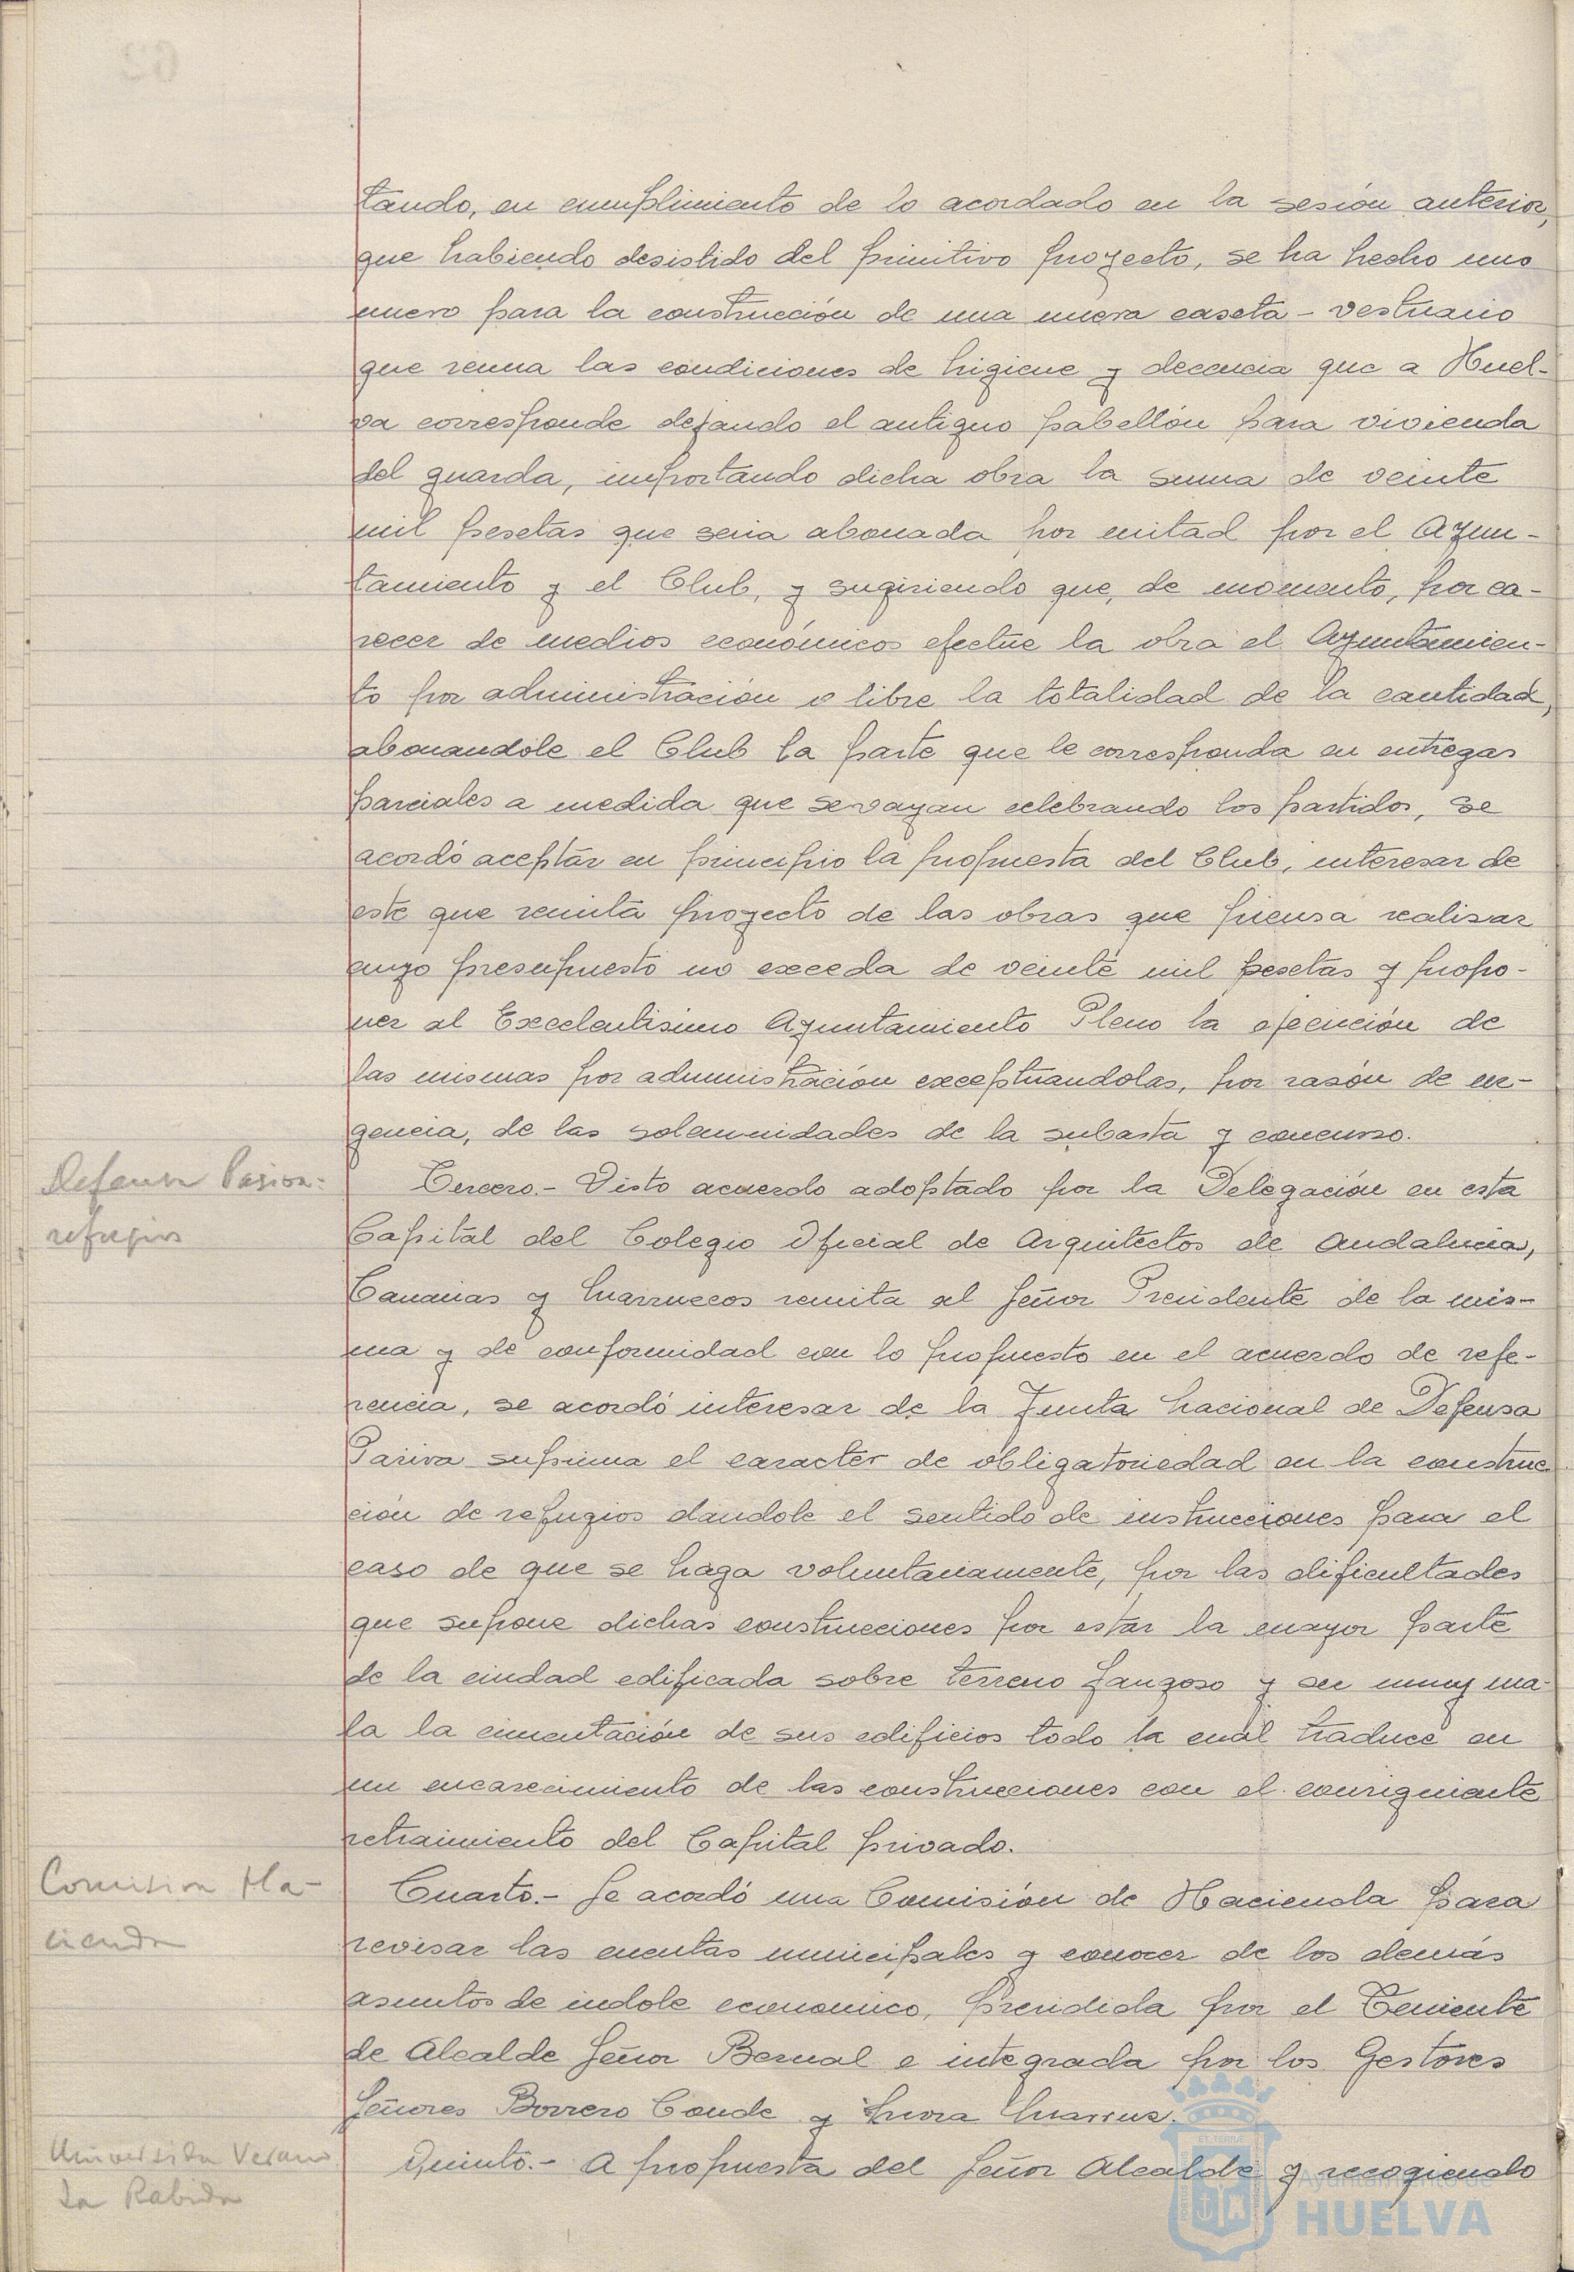 tando, en cumplimiento de lo acordado en la sesión anterior,
que habiendo desistido del primitivo proyecto, se ha hecho uno
nuevo para la construcción de una nueva caseta - vestuario
que reuna las condiciones de higiene y decencia que a Huel-
va corresponde dejando el antiguo pabellón para vivienda
del guarda, importando dicha obra la suma de veinte
mil pesetas que seria abonada por mitad por el Ayun-
tamiento y el Club, y sugiriendo que, de momento, por ca-
recer de medios económicos efectúe la obra el Ayuntamien-
to por administración o libre la totalidad de la cantidad,
abonandole el Club la parte que le corresponda en entregas
parciales a medida que se vayan celebrando los partidos, se
acordó aceptar en principio la propuesta del Club, interesar de
este que remita proyecto de las obras que piensa realisar
cuyo presupuesto no exceda de veinte mil pesetas y propo-
ner al Excelentisimo Ayuntamiento Pleno la ejecución de
las mismas por administración exceptuandolas, por rasón de ur-
gencia, de las solemnidades de la subasta y concurso.
Defensa Pasiva:
refugios
Tercero.- Visto acuerdo adoptado por la Delegación en esta
Capital del Colegio Oficial de Arquitectos de Andalucia,
Canarias y Marruecos remita al Señor Presidente de la mis-
ma y de conformidad con lo propuesto en el acuerdo de refe-
rencia, se acordó interesar de la Junta Nacional de Defensa
Pasiva suprima el caracter de obligatoriedad en la construc-
ción de refugios dandole el sentido de instrucciones para el
caso de que se haga voluntariamente, por las dificultades
que supone dichas construcciones por estar la mayor parte
de la ciudad edificada sobre terreno fangoso y ser muy ma-
la la cimentación de sus edificios todo la cual traduce en
un encarecimiento de las construcciones con el consiguiente
retraimiento del Capital privado.
Comision Ha-
cienda
Cuarto.- Se acordó una Comisión de Hacienda para
revisar las cuentas municipales y conocer de los demás
asuntos de indole economico, presidida por el Teniente
de Alcalde Señor Bernal e integrada por los Gestores
Señores Borrero Conde y Mora
Universida Verano
La Rabida
Quinto.- A propuesta del Señor Alcalde y recogiendo
Ayuntamiento de
HUELVA